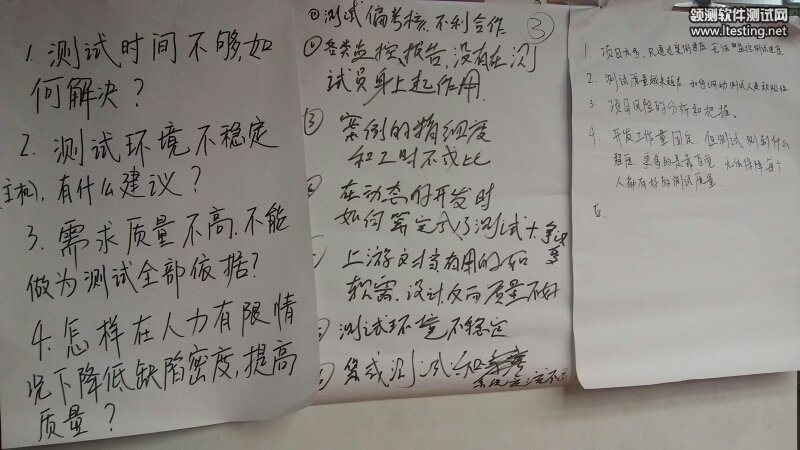 领测软件测试网
www.ltesting.net
1. 测试时间不够,如
何解决?
2. 测试环境不稳定
(主机), 有什么建议?
3. 需求质量不高,不能
做为测试全部依据?
4. 怎样在人力有限情
况下降低缺陷密度,提高
质量?
③
① 测试偏考核,不利合作
各类监控、报告,没有在测
试员身上起作用
③ 案例的精细度
和工时不成比
在动态的开发时
如何算完成了测试
上游文档有用的
软需、设计 质量不好
测试环境不稳定
集成测试和
1. 项目太多,只通过案例进度 无法监控测试进度
2. 测试质量越来越高 如何调动测试人员积极性
3. 项目风险的分析和把握。
4. 开发工作量固定 但测试测到什么
程度 更多的是靠自觉 无法保障每个
人都有好的测试质量
5.